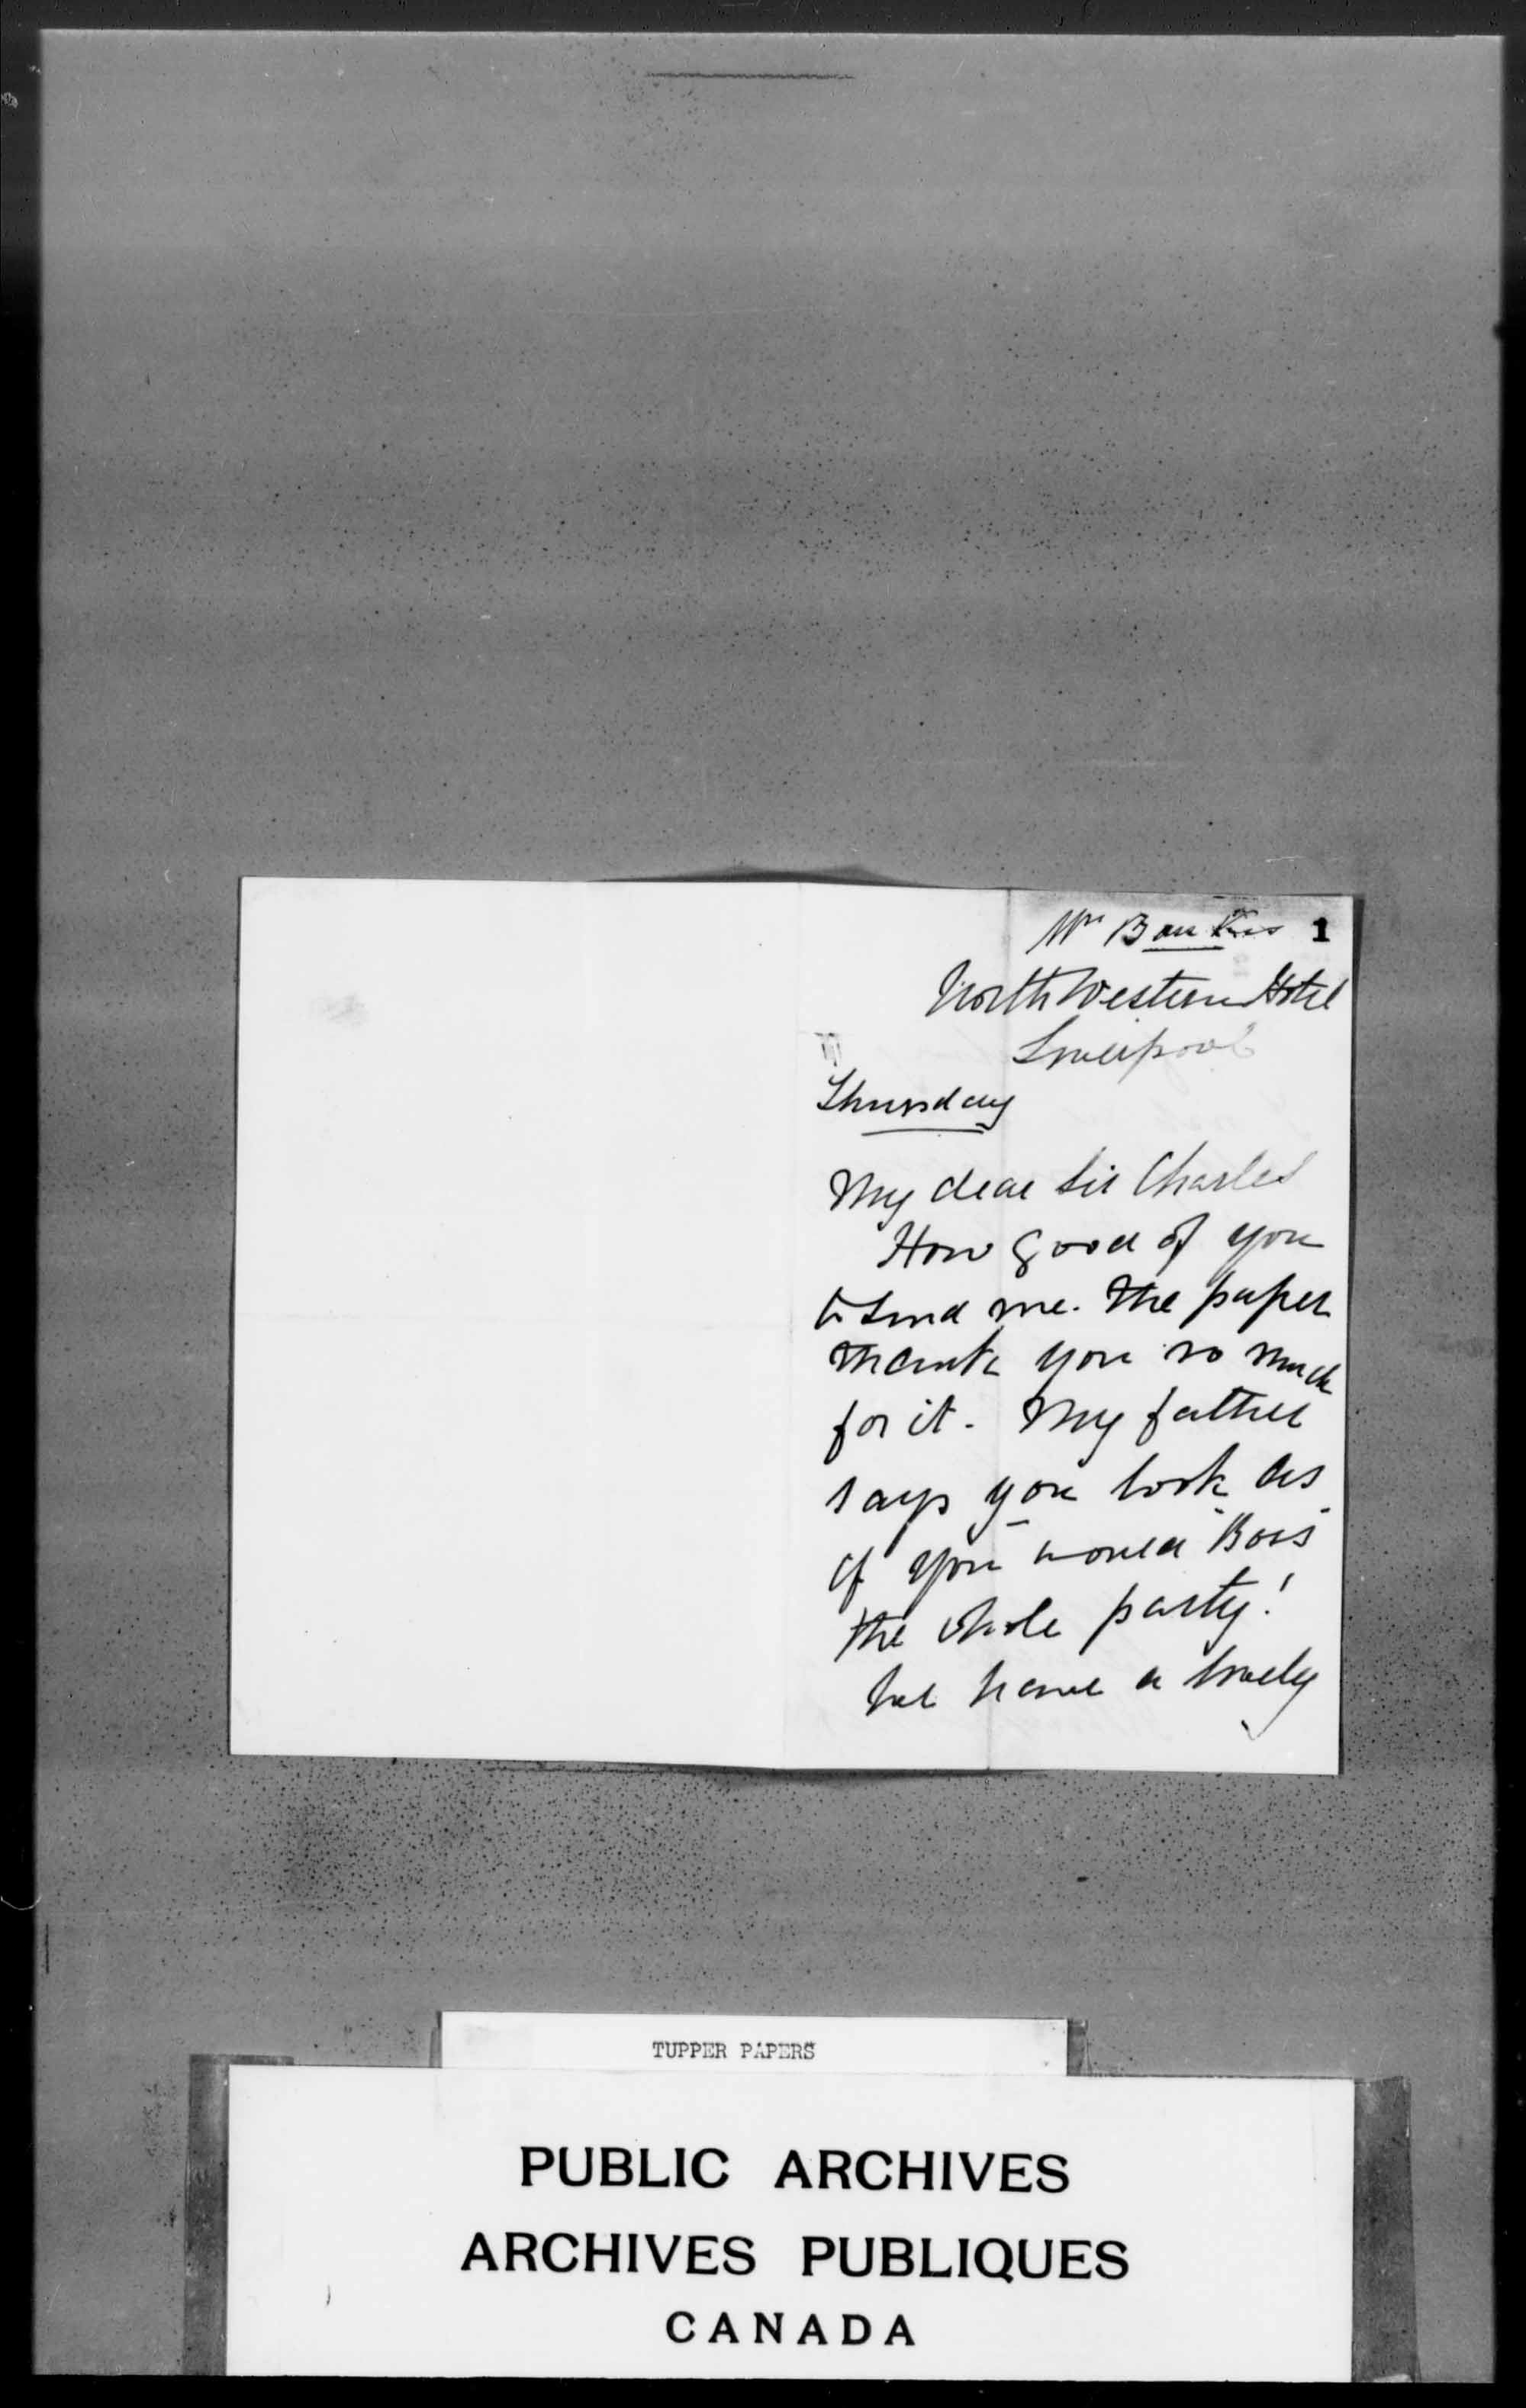 Mrs Bankes 1
North Western Hotel
Liverpool
Thursday
My dear Sir Charles
How good of you
to send me. the paper
thank you so much
for it. My father
says you look as
if you would "Boss"
the whole party!
We have a lovely
TUPPER PAPERS
PUBLIC ARCHIVES
ARCHIVES PUBLIQUES
CANADA